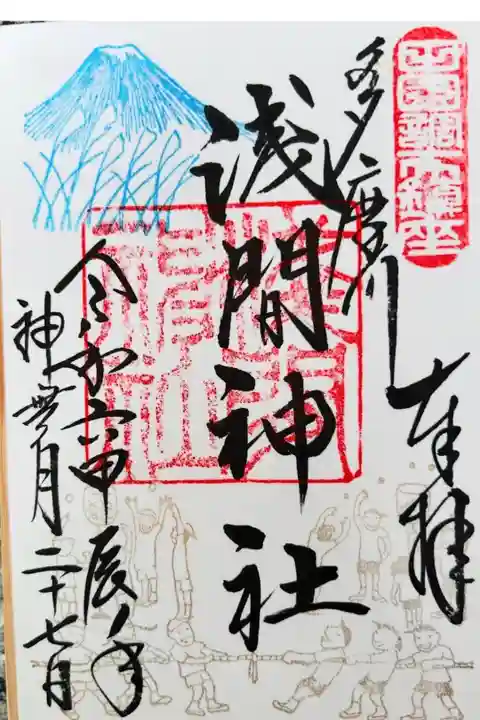 田園調布鎮座
多摩川
奉拝
浅間神社
令和六甲辰ノ年
神無月二十七日